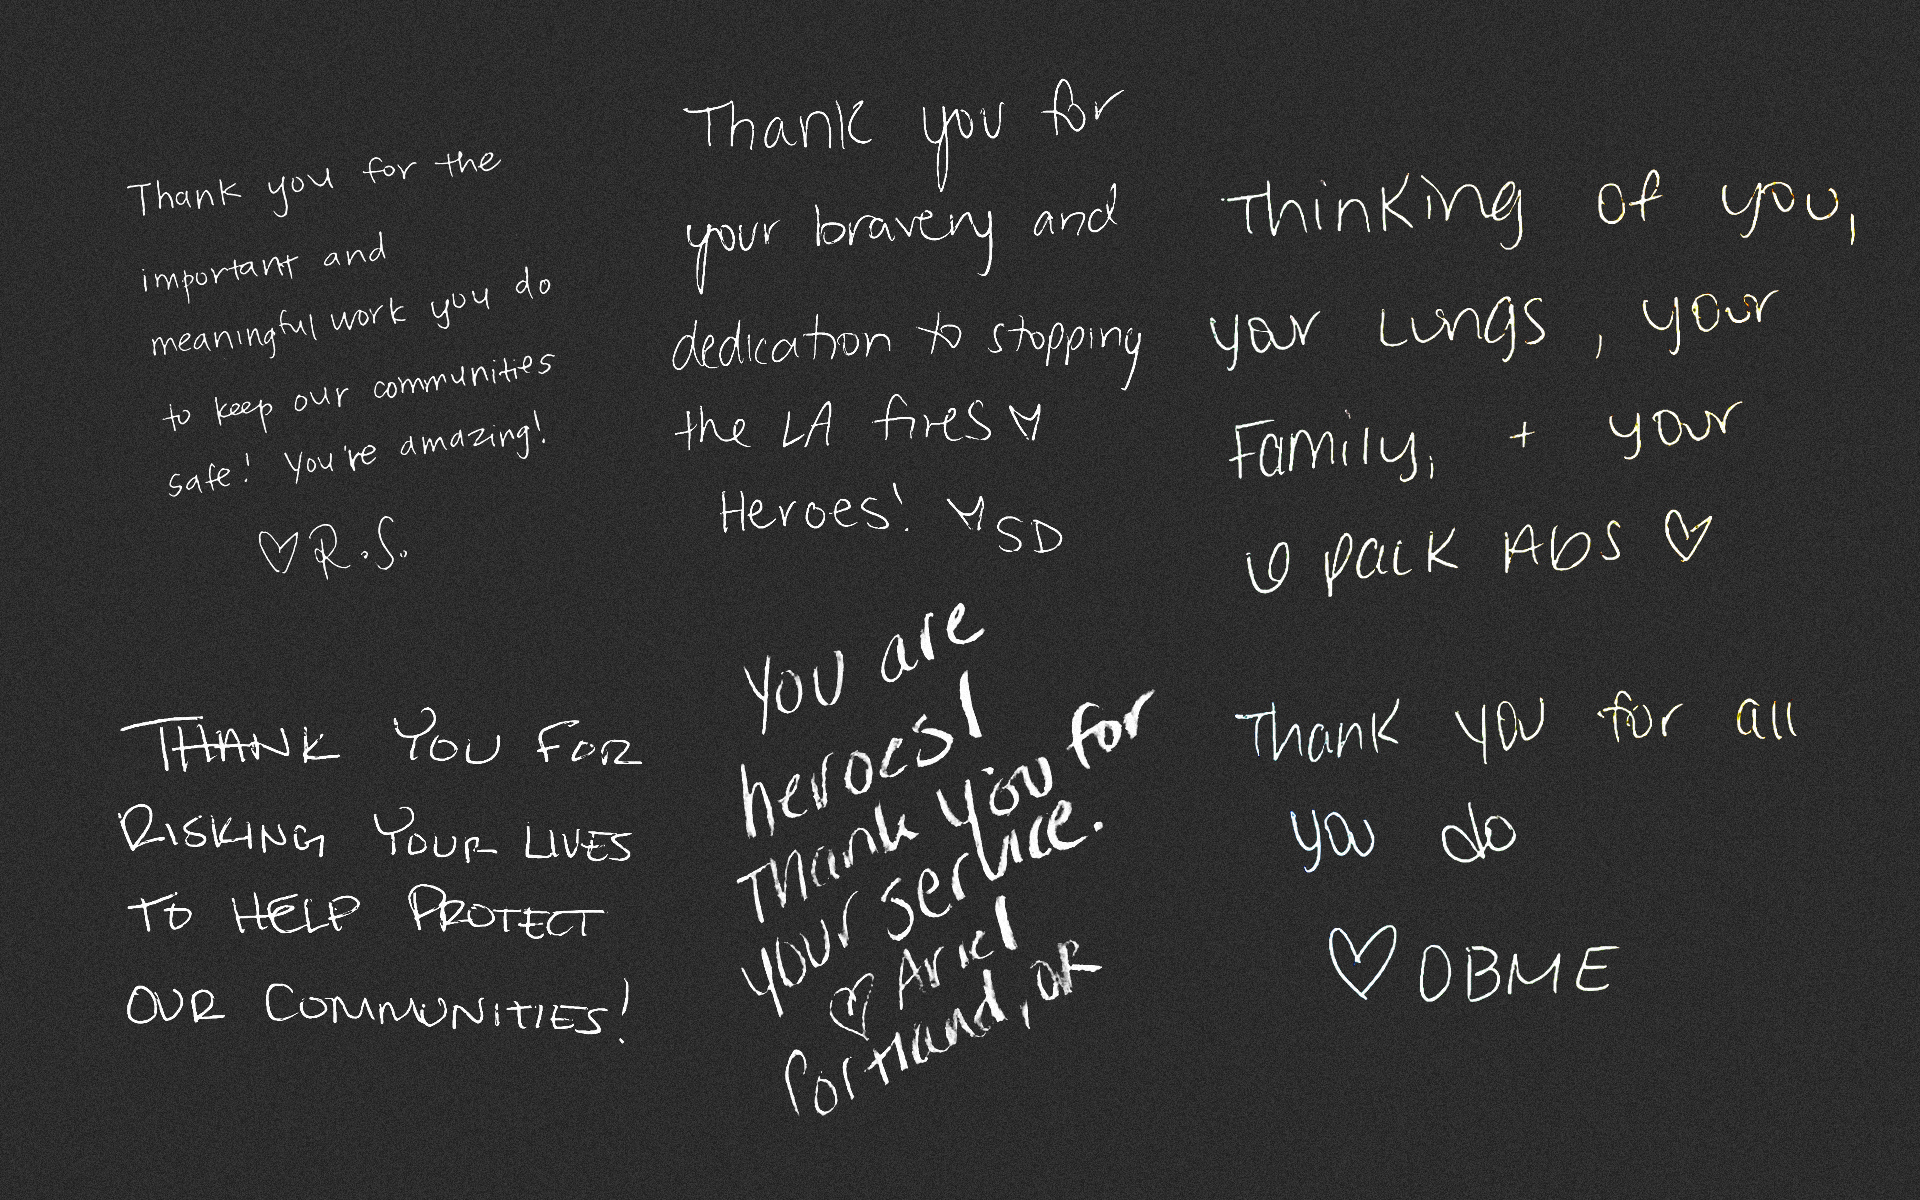 Thank you for the
important and
meaningful work you do
to keep our communities
safe! You're amazing!
♡ R.S.
Thank you for
your bravery and
dedication to stopping
the LA fires ♡
Heroes! ♡ SD
Thinking of you,
your Lungs, your
Family, + your
6 pack Abs ♡
THANK YOU FOR
RISKING YOUR LIVES
TO HELP PROTECT
OUR COMMUNITIES!
You are
heroes!
Thank you for
your service.
♡ Ariel
Portland, OR
Thank you for all
you do
♡ OBME